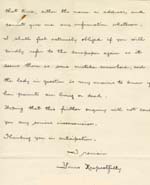 that time, either the name or address, and
cannot give me any information whatever.
I shall feel extremely obliged if you will
kindly refer to the newspaper again as it
seems there is some mistake somewhere, and
the lady in question is very anxious to know if
her parents are living or dead.
Hoping that this further enquiry will not cause
you any serious inconvenience.
Thanking you in anticipation,
I remain
Yours Respectfully